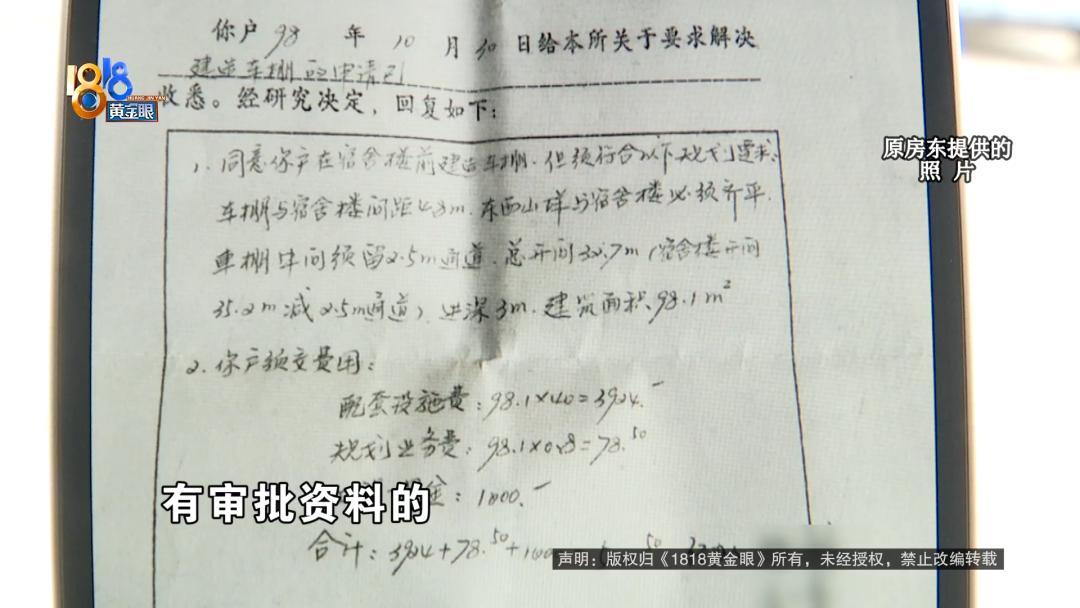 你户98年10月30日给本所关于要求解决
建造车棚的申请已
收悉。经研究决定,回复如下:
1818
HUANG JIN YAN
黄金眼
原房东提供的
照 片
1.同意你户在宿舍楼前建造车棚.但须符合以下规划要求.
车棚与宿舍楼间距4.8m.东西山墙与宿舍楼必须齐平.
車棚中间须留2.5m通道.总开间32.7m(宿舍楼开间
35.2m减2.5m通道),进深3m.建筑面积98.1m²
2.你户须交费用:
配套设施费:98.1×40=3924.-
规划业务费:98.1×0.8=78.50
金:1000.-
合计:3924+78.50+100
有审批资料的
声明:版权归《1818黄金眼》所有,未经授权,禁止改编转载